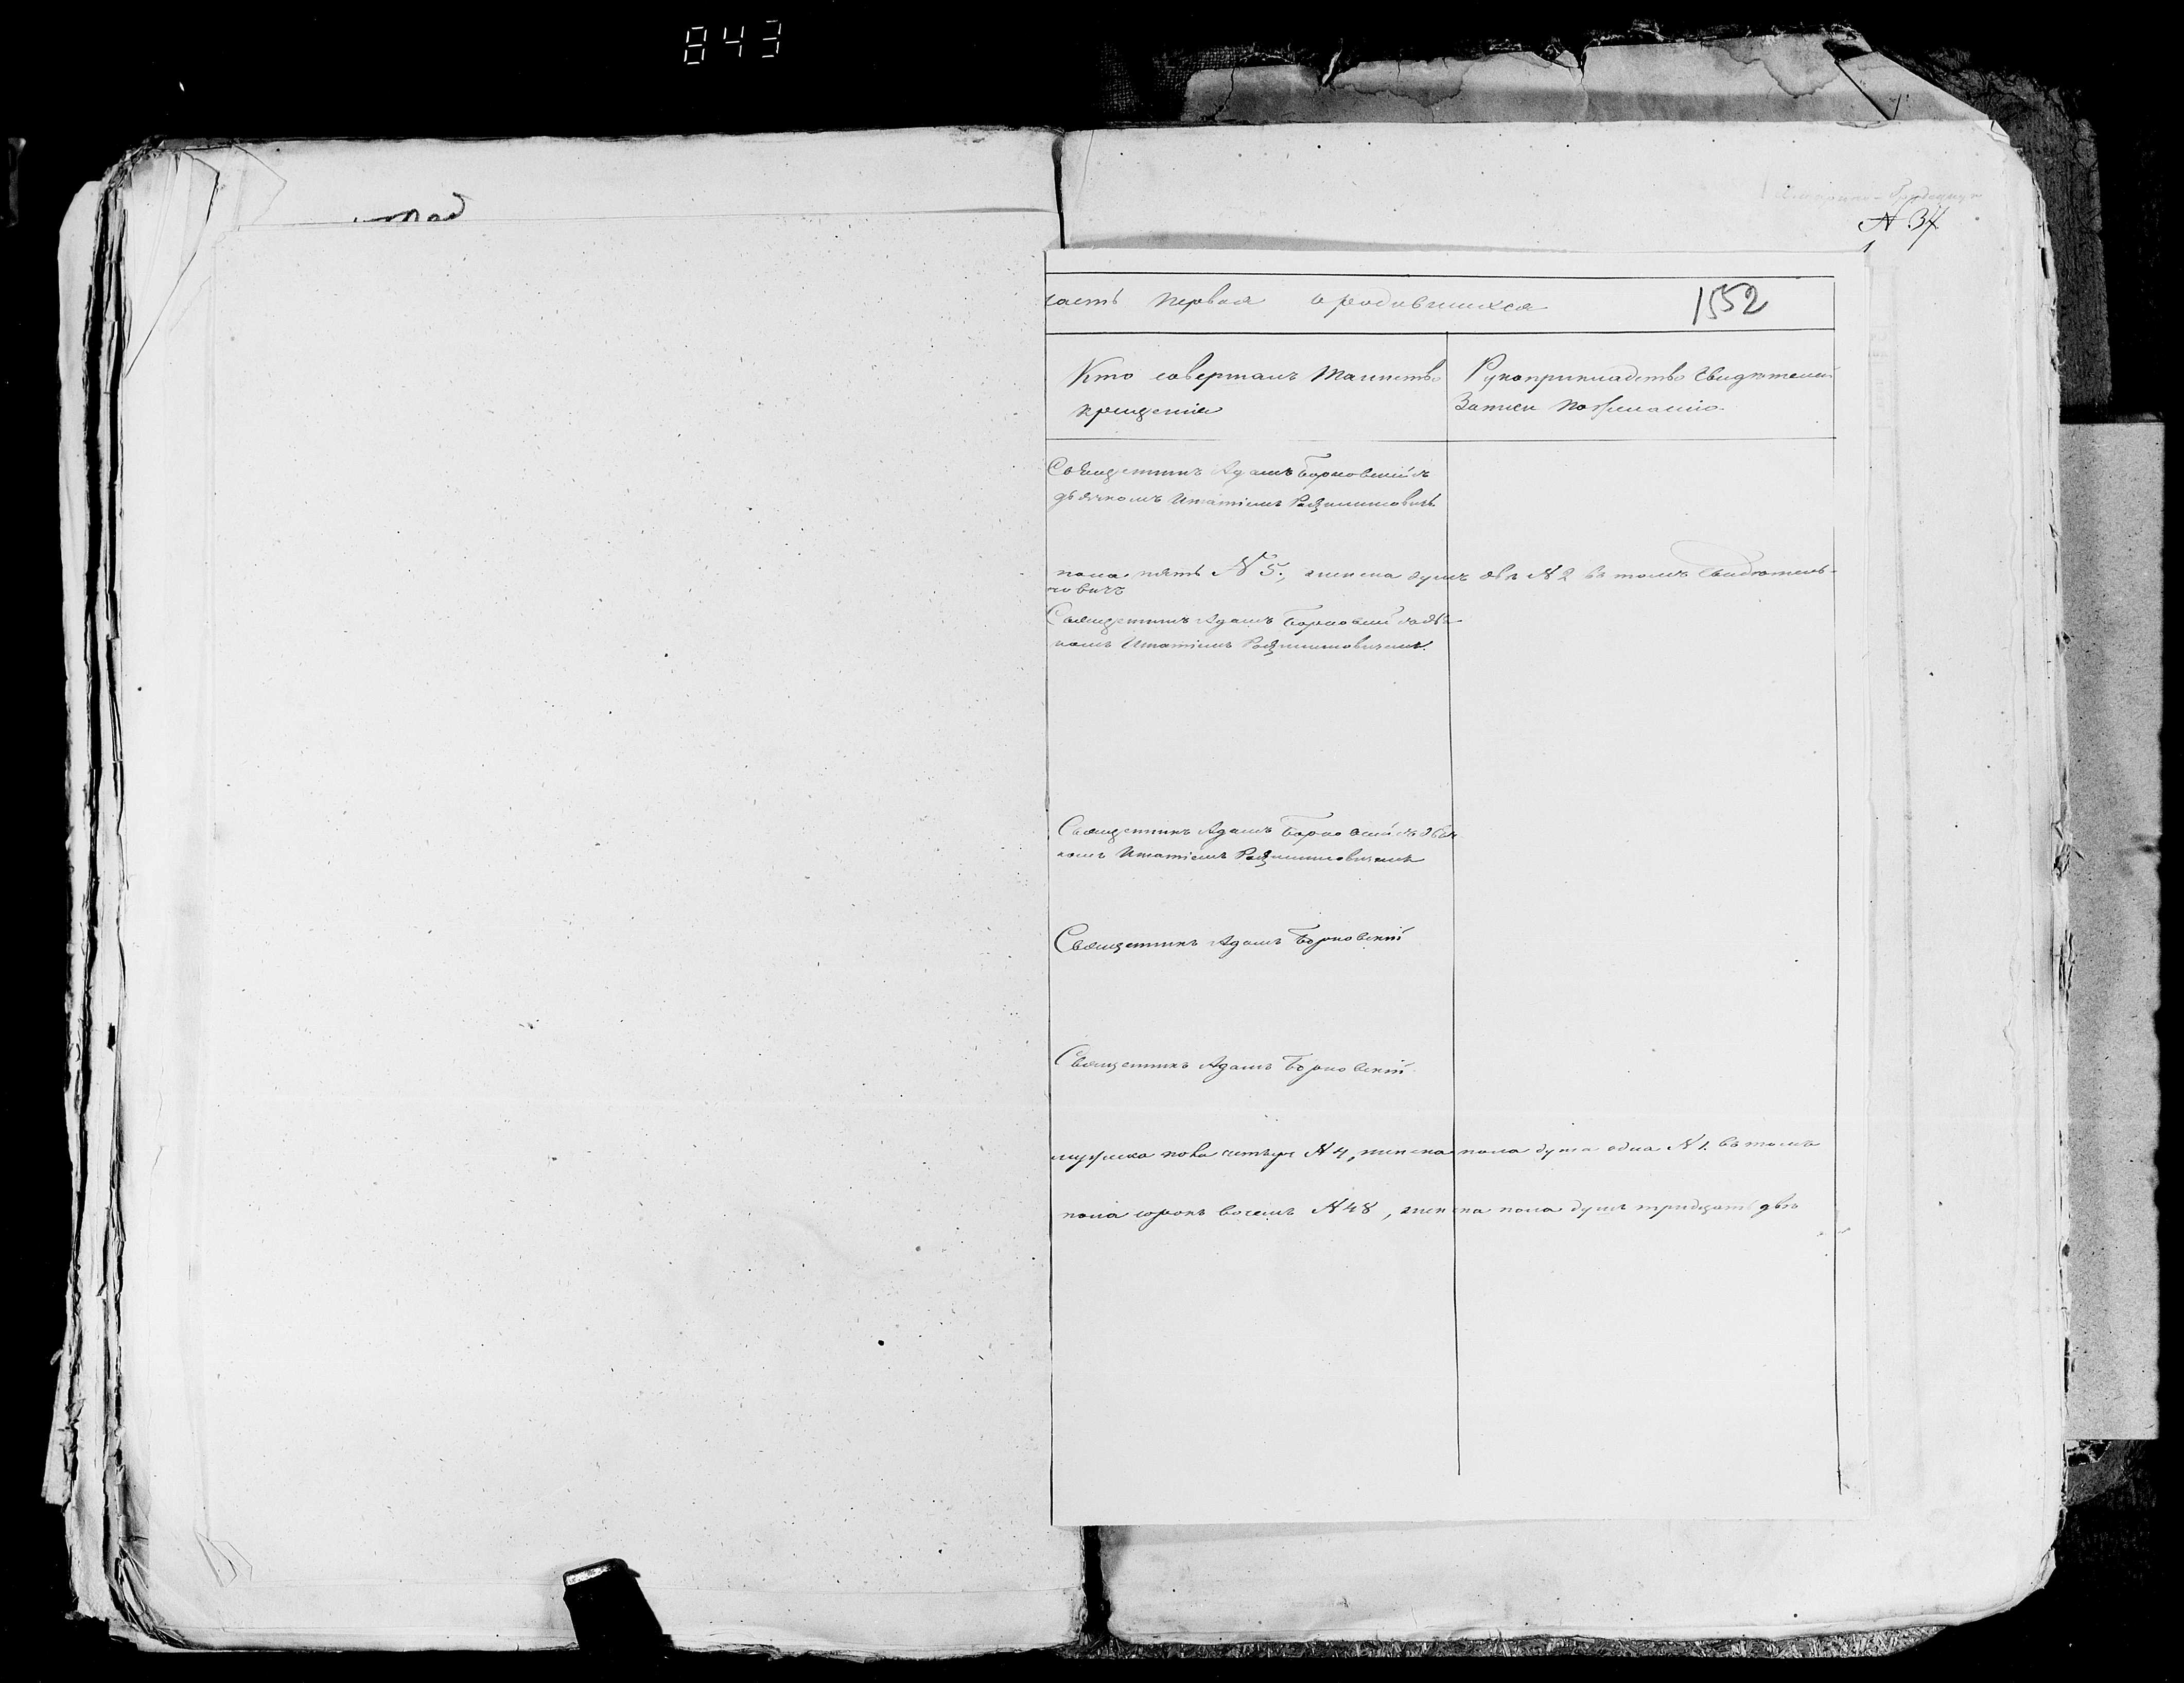 843
N 34
часть первая о родившихся
1552
Кто совершалъ таинство
крещенія
Рукоприкладство свидѣтелей
записи по желанію
Священникъ Адамъ Борковскій съ
дьячкомъ Игнатіемъ
пола пять N 5., женска душъ двѣ N 2 въ томъ свидѣтель-
Священникъ Адамъ Борковскій съ дья
комъ Игнатіемъ
Священникъ Адамъ Борковскій съ дьяч
комъ Игнатіемъ
Священникъ Адамъ Борковскій
Священникъ Адамъ Борковскій
мужска пола четыре N 4, женска пола душа одна N 1. въ томъ
пола сорокъ восемъ N 48, женска пола душъ тридцать двѣ